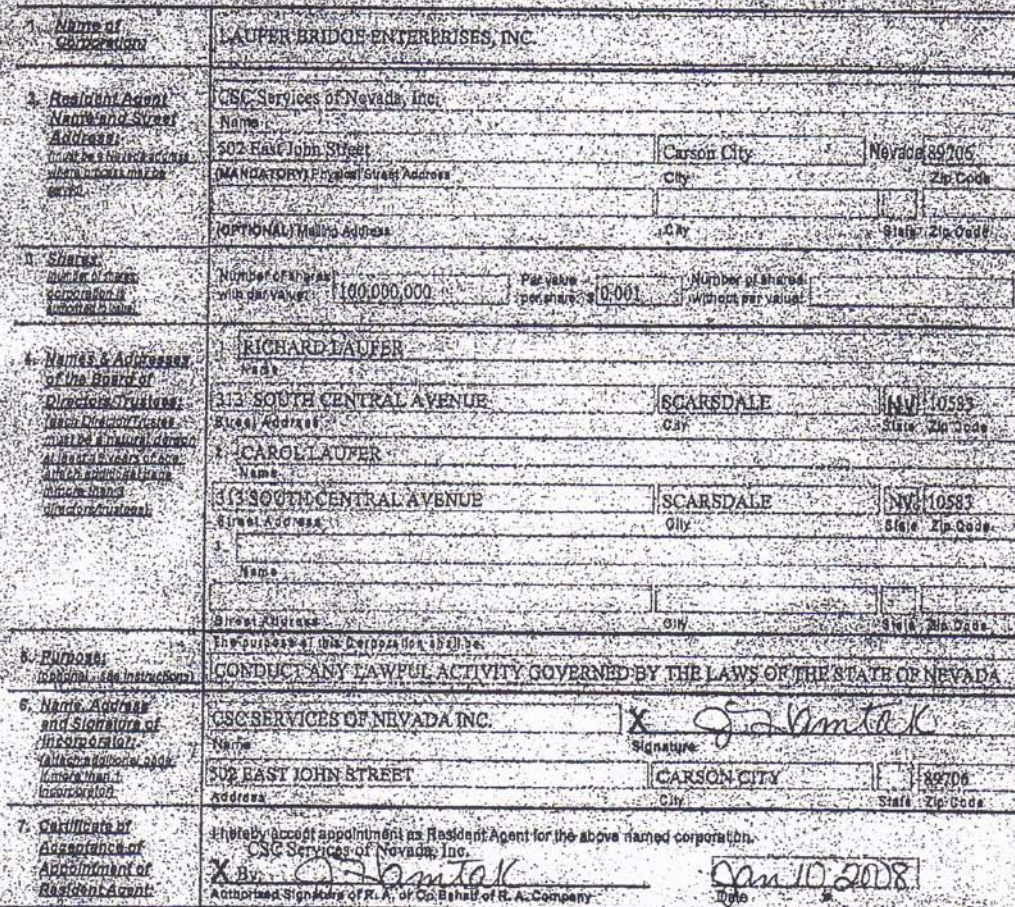 1. Name of Corporation:
LAUFER BRIDGE ENTERPRISES, INC.
2. Resident Agent Name and Street Address:
(must be a Nevada address where process may be served)
CSC Services of Nevada, Inc.
Name
502 East John Street Carson City Nevada 89706
(MANDATORY) Physical Street Address City Zip Code
(OPTIONAL) Mailing Address City State Zip Code
3. Shares:
(number of shares corporation is authorized to issue)
Number of shares with par value: 100,000,000 Par value per share: $ 0.001 Number of shares without par value:
4. Names & Addresses of the Board of Directors/Trustees:
(each Director/Trustee must be a natural person at least 18 years of age; attach additional page if more than 3 directors/trustees)
1. RICHARD LAUFER
Name
313 SOUTH CENTRAL AVENUE SCARSDALE NV 10583
Street Address City State Zip Code
2. CAROL LAUFER
Name
313 SOUTH CENTRAL AVENUE SCARSDALE NV 10583
Street Address City State Zip Code
3.
Name
Street Address City State Zip Code
5. Purpose:
(optional - see instructions)
The purpose of this Corporation shall be:
CONDUCT ANY LAWFUL ACTIVITY GOVERNED BY THE LAWS OF THE STATE OF NEVADA
6. Name, Address and Signature of Incorporator:
(attach additional page if more than 1 incorporator)
CSC SERVICES OF NEVADA INC. X
Name Signature
502 EAST JOHN STREET CARSON CITY 89706
Address City State Zip Code
7. Certificate of Acceptance of Appointment of Resident Agent:
I hereby accept appointment as Resident Agent for the above named corporation.
CSC Services of Nevada, Inc.
X By: Jan 10, 2008
Authorized Signature of R. A. or On Behalf of R. A. Company Date